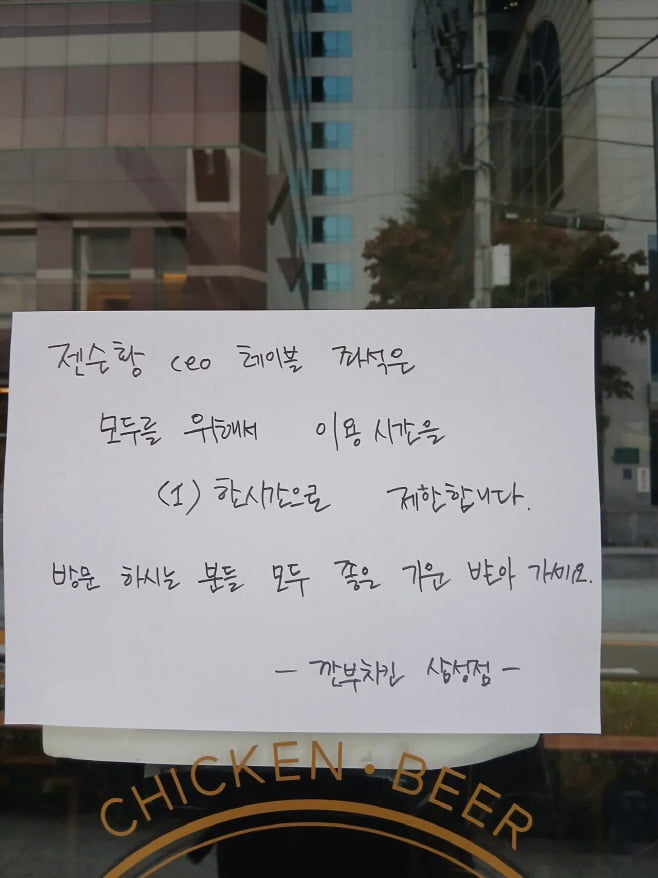 젠슨황 ceo 테이블 좌석은
모두를 위해서 이용 시간을
(1) 한시간으로 제한합니다.
방문 하시는 분들 모두 좋은 기운 받아 가세요.
- 깐부치킨 삼성점 -
CHICKEN • BEER